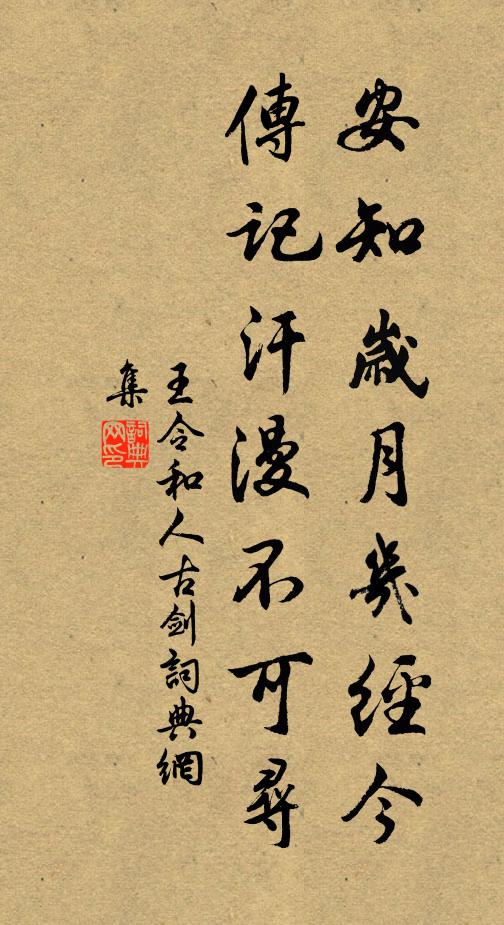 安知歲月幾經今
傳記汗漫不可尋
王令和人古劍詞典網
集
詞典
网印